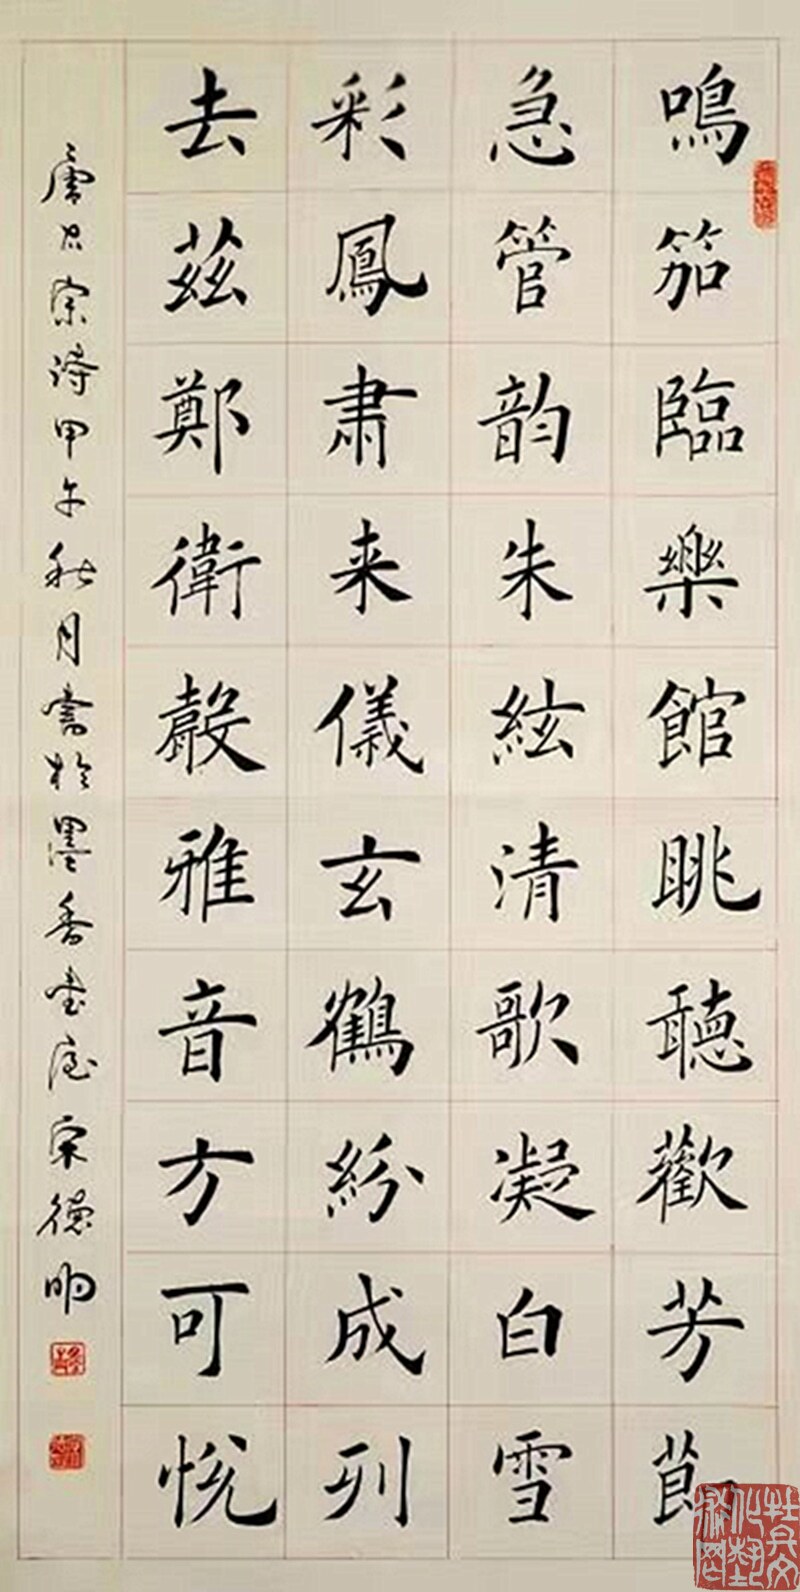 鳴笳臨樂館眺聽歡芳節
急管韵朱絃清歌凝白雪
彩鳳肅来儀玄鶴紛成列
去茲鄭衛聲雅音方可悅
唐太宗诗甲午秋月書於墨香書屋宋德明